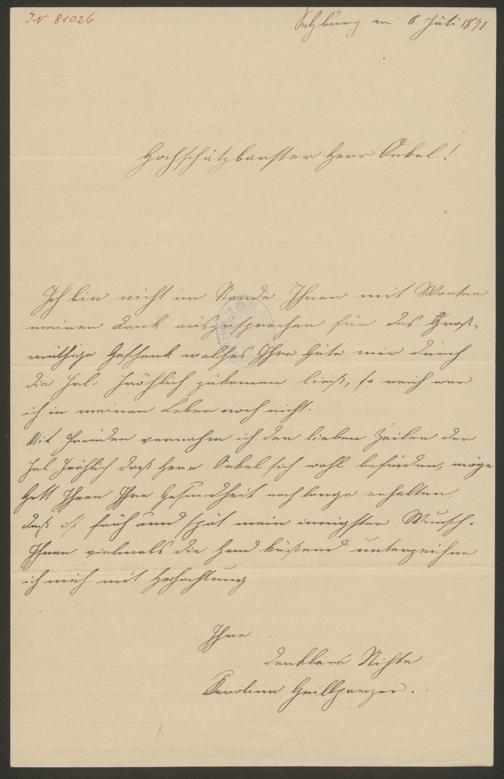 IN 81026
Salzburg am 6 Juli 1871
Hochschätzbarster Herr Onkel!
Ich bin nicht im Stande Ihnen mit Worten
meinen Dank auszusprechen für das Groß-
müthige Geschenk welches Ihre Güte mir durch
die Frl. Fröhlich zukomen ließ, so reich war
ich in meinen Leben noch nicht.
Mit Freuden vernahm ich den lieben Zeilen der
Frl Fröhlich daß Herr Onkel sich wohl befinden, möge
Gott Ihnen Ihre Gesundheit noch lange erhalten,
daß ist früh und spät mein innigster Wunsch.
Ihnen vielmals die Hand küssend unterzeichne
ich mich mit Hochachtung
Ihre
dankbare Nichte
Karolina Grillparzer.